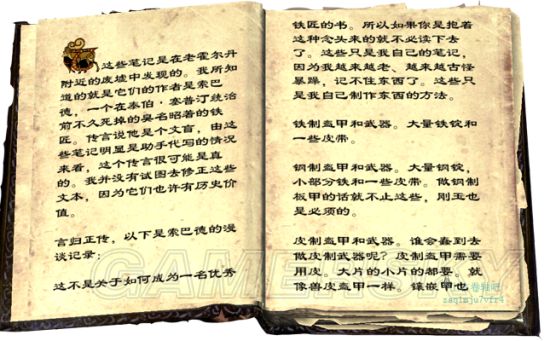 这些笔记是在老霍尔丹
附近的废墟中发现的。我所知
道的就是它们的作者是索巴
德，一个在泰伯·塞普汀统治
前不久死掉的臭名昭著的铁
匠。传言说他是个文盲，由这
些笔记明显是助手代写的情况
来看，这个传言很可能是真
的。我并没有试图去修正这些
文本，因为它们也许有历史价
值。
言归正传，以下是索巴德的漫
谈记录：
这不是关于如何成为一名优秀
铁匠的书。所以如果你是抱着
这种念头来的就不必读下去
了。这些只是我自己的笔记，
因为我越来越老、越来越古怪
暴躁，记不住东西了。这些只
是我自己制作东西的方法。
铁制盔甲和武器。大量铁锭和
一些皮带。
钢制盔甲和武器。大量钢锭，
小部分铁和一些皮带。做钢制
板甲的话就不止这些，刚玉也
是必须的。
皮制盔甲和武器。谁会蠢到去
做皮制武器呢？皮制盔甲需要
用皮。大片的小片的都要。就
像兽皮盔甲一样，镶嵌甲也
GAMERSKY
zaqimju7vfr4